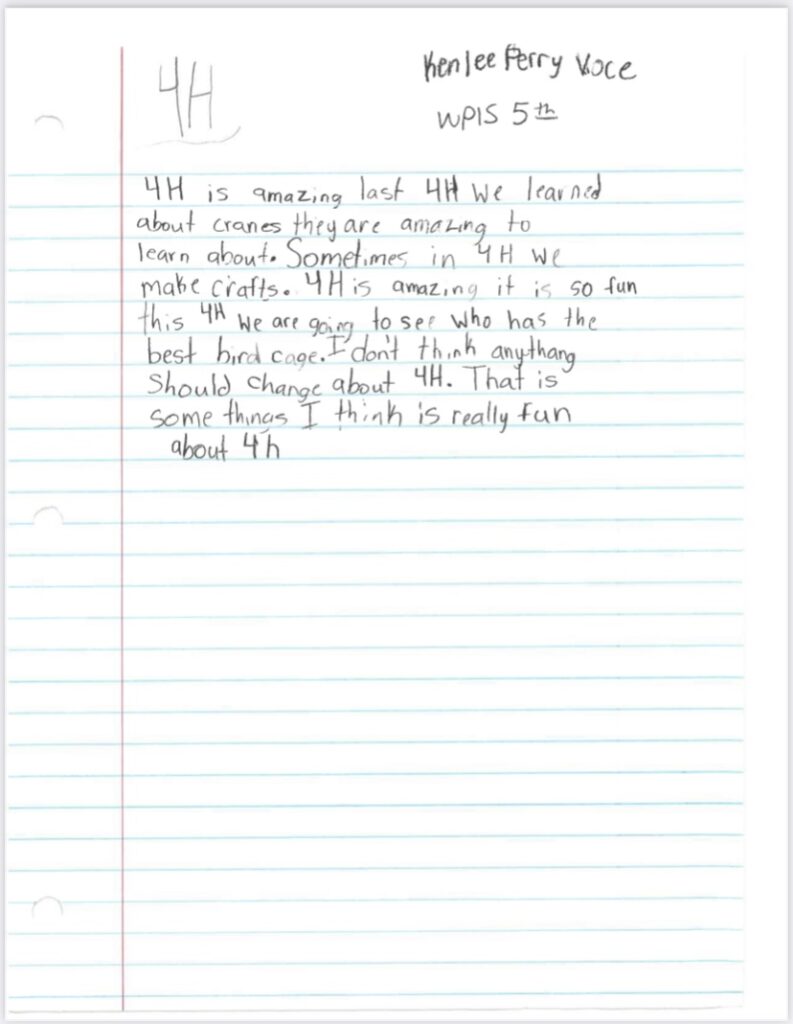 4H
Kenlee Perry Voce
WPIS 5th
4H is amazing last 4H we learned
about cranes they are amazing to
learn about. Sometimes in 4H we
make crafts. 4H is amazing it is so fun
this 4H we are going to see who has the
best bird cage. I don't think anythang
Should change about 4H. That is
some things I think is really fun
about 4h